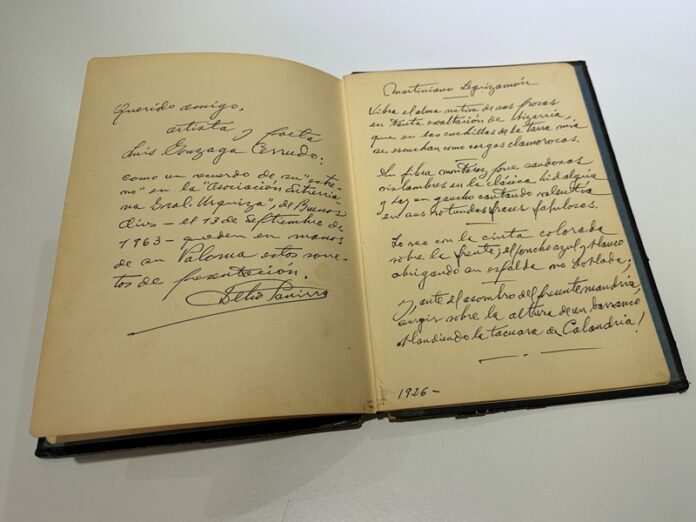 Querido amigo,
artista y poeta
Luis Gonzaga Cerrudo:
como un recuerdo de su "estre-
no" en la "Asociación Entrerria-
na Gral. Urquiza", de Buenos
Aires — el 13 de Septiembre de
1963 — queden en manos
de su Paloma estos sone-
tos de presentación.
Delio Panizza
Martiniano Leguizamón
Vibra el alma nativa de sus prosas
en tanta exaltación de bizarría,
que en las cuchillas de la tierra mía
se escuchan como cargas clamorosas.
La fibra montaraz pone
vislumbres en la clásica hidalguía
y hay un gaucho cantando valentía
en sus rotundas frases fabulosas.
Lo veo con la cinta colorada
sobre la frente; el poncho azul y blanco
abrigando su espalda no doblada;
y, ante el asombro del presente
surgir sobre la altura de un barranco
blandiendo la tacuara de Calandria!
1926 —